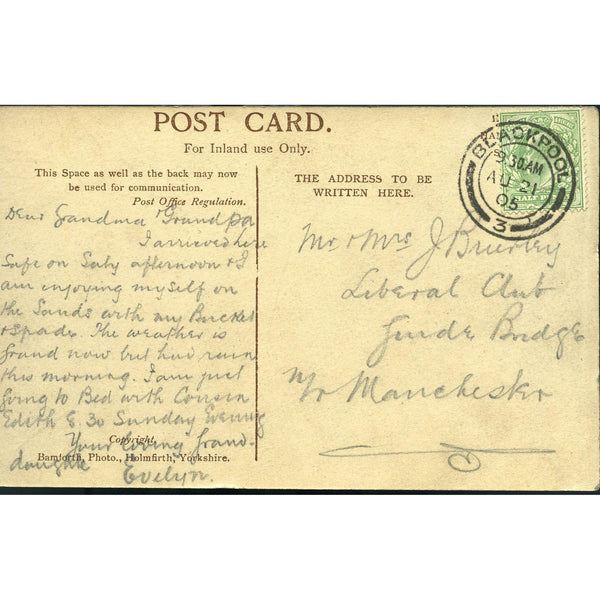 POST CARD.
For Inland use Only.
This Space as well as the back may now
be used for communication.
Post Office Regulation.
Dear Grandma & Grandpa
I arrived here
Safe on Saty afternoon & I
am enjoying myself on
the Sands with my Bucket
& Spade. The weather is
grand now but had rain
this morning. I am just
going to Bed with Cousin
Edith 8.30 Sunday Evening
Your loving Grand-
daughter
Evelyn.
Copyright.
Bamforth, Photo., Holmfirth, Yorkshire.
THE ADDRESS TO BE
WRITTEN HERE.
Mr & Mrs J Brierley
Liberal Club
Guide Bridge
Nr Manchester
BLACKPOOL
30AM
AU 21
05
3
HALF P